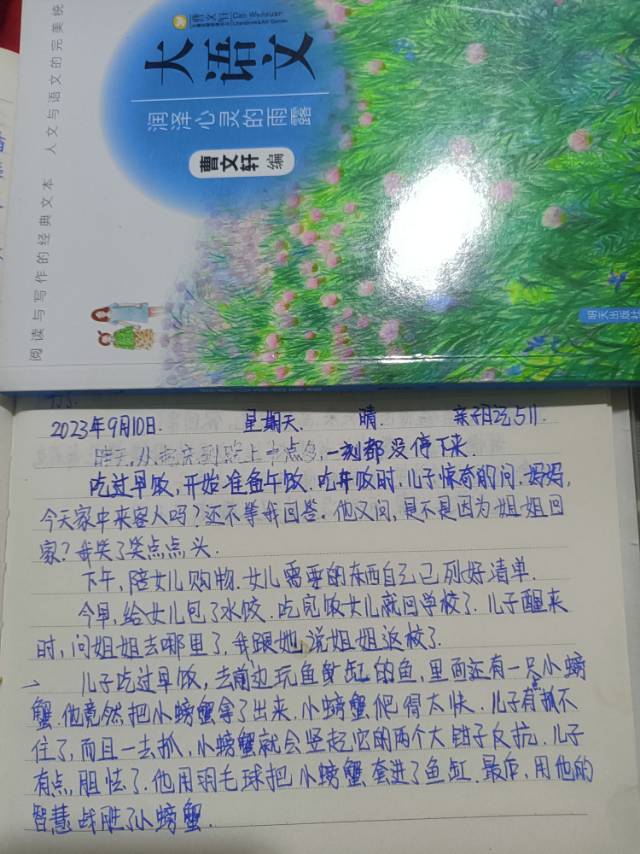 阅读与写作的经典文本 人文与语文的完美统
曹文轩
大语文
润泽心灵的雨露
曹文轩 编
明天出版社
2023年9月10日. 星期天. 晴. 亲子日记511.
昨天,从起床到晚上十点多,一刻都没停下来.
吃过早饭,开始准备午饭.吃午饭时,儿子惊奇的问:妈妈,
今天家中来客人吗?还不等我回答.他又问,是不是因为姐姐回
家?我笑了笑点点头.
下午,陪女儿购物.女儿需要的东西自己已列好清单.
今早,给女儿包了水饺.吃完饭女儿就回学校了.儿子醒来
时,问姐姐去哪里了,我跟她说姐姐返校了.
儿子吃过早饭,去前边玩鱼缸的鱼,里面还有一只小螃
蟹.他竟然把小螃蟹拿了出来.小螃蟹爬得太快.儿子有抓不
住了,而且一去抓,小螃蟹就会竖起它的两个大钳子反抗.儿子
有点,胆怯了.他用羽毛球把小螃蟹套进了鱼缸.最后,用他的
智慧战胜了小螃蟹.